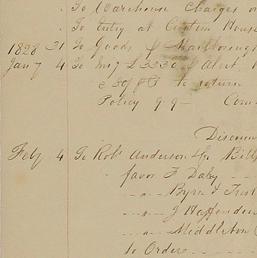 To Warehouse Charges on
" To Entry at Custom House
1828 31 To Goods p Marlborough
Jany 4 To mig £3350 of Alert
@ 30/ pCt to return
Policy 9/9 — Com
Discoun
Feby 4 To Robt Anderson for Bills
favor F Daley
— " — Byrn & Trist
— " — J Heffenden
— " — Middleton
to Orders